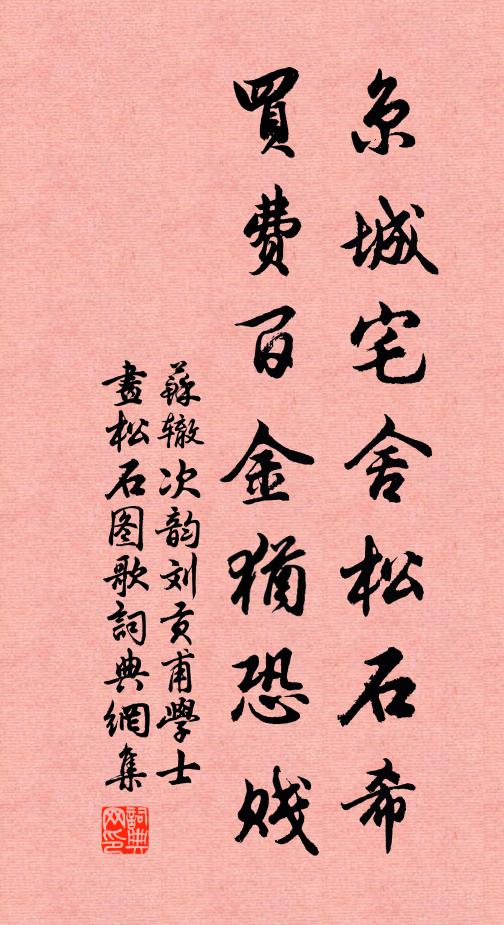 京城宅舍松石希
買費百金猶恐贱
蘇辙次韵刘贡甫學士
畫松石图歌詞典網集
詞典网印